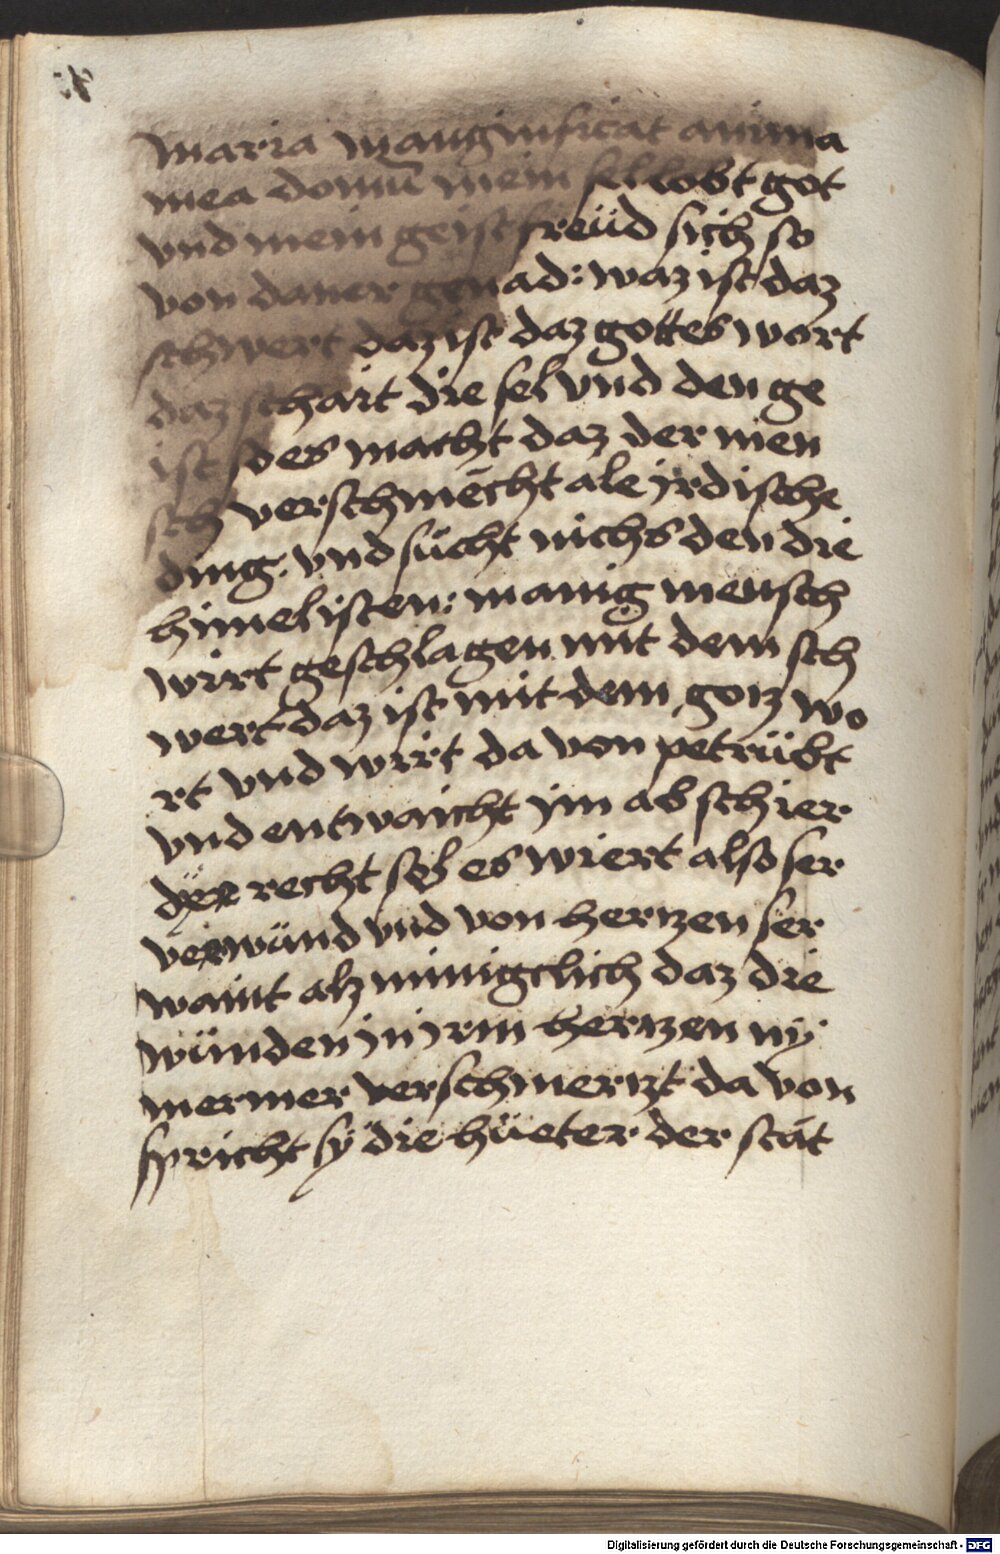 maria mangnificat anima
mea domnū mein sel lobt got
vnd mein geist freüd sich so
von daner genad: waz ist daz
schwert daz ist daz gottes wort
daz schait die sel vnd den ge
ist / des macht daz der men
sch verschmecht ale jrdische
ding. vnd sücht nichs den die
himelisten: manig mensch
wirt geschlagen mit dem sch
wert daz ist mit dem gotz wo
rt vnd wirt da von petrübt
vnd entwaicht jm ab schier
recht sel es wiert also ser
verwünd vnd von hertzen ser
waint alz minigclich daz die
wünden jn jrm hertzen ny
mermer verschmertzt da von
spricht sy die hüeter der stat
Digitalisierung gefördert durch die Deutsche Forschungsgemeinschaft - DFG